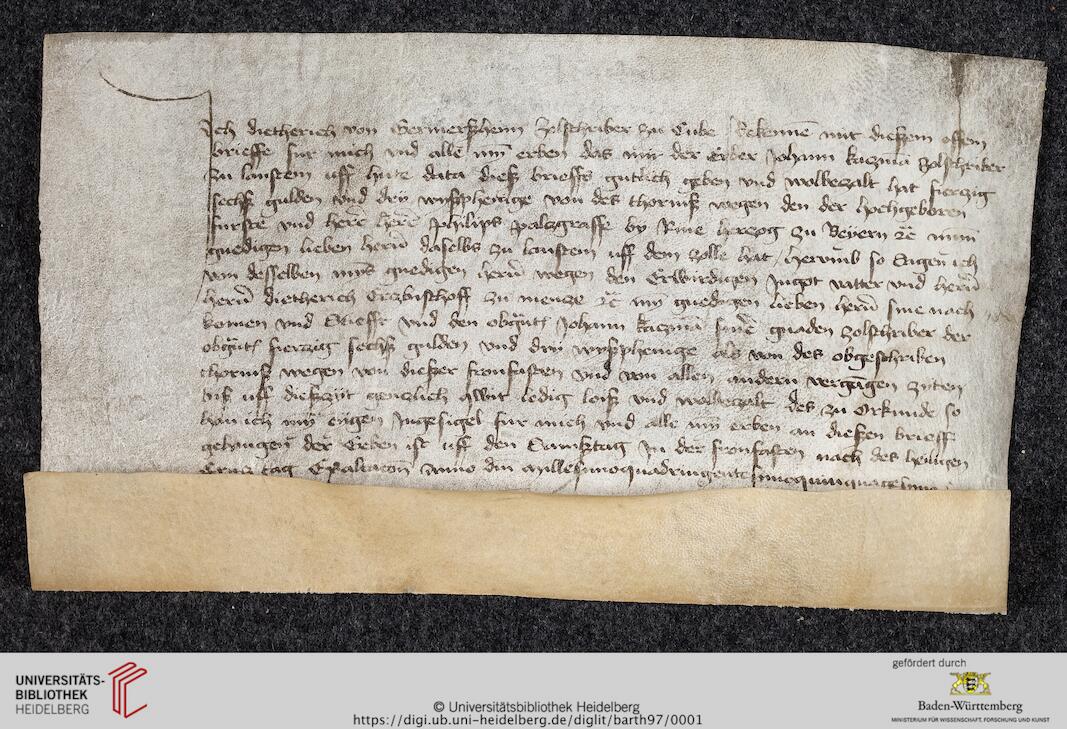 Ich dietherich von Germerßheim Zolschriber zu Cube Bekennē mit dießem offem
brieffe fur mich vnd alle myn̄ erben das mir der Erber Johann kaczmā Zolschriber
zu lanstein uff hute data dieß brieffs gutlich geben vnd wolbezalt hat fierzig
sechß gulden vnd dry wyßphenige von des thornß wegen den der hochgeboren
furste vnd herre herre philips palczgraffe by Rine herzog zu Beyern ꝛc mynn
gnedigen lieben hern̄ daselbs zu lanstein uff dem zolle hat hervmb so
von desselben myns gnedigen hern̄ wegen den Erwirdigen Ingot vatter vnd hern̄
hern̄ dietherich Erczbischoff zu mencze ꝛc myn gnedigen lieben hern̄ sine nach
komen vnd Stieffte vnd den obgn̄t Johann kaczmā sinē gnaden zolschriber der
obgn̄t fierzig sechß gulden vnd dry wyßphenige als von des obgeschriben
thornß wegen von dießer fronfasten vnd von allen andern vergāgen zyten
biß uff dießzijt genczlich qwit ledig loiß vnd wolbezalt des zu Orkunde so
han ich myn eygen Ingesigel fur mich vnd alle myn erben an dießen brieff
gehangen̄ der Geben ist uff den Samßtag In der fronfasten nach des heiligen
Crucz tag Exaltacōn̄ Anno dn̄i Millesimoquadringentesimoquinquagesimo
UNIVERSITÄTS-
BIBLIOTHEK
HEIDELBERG
© Universitätsbibliothek Heidelberg
https://digi.ub.uni-heidelberg.de/diglit/barth97/0001
gefördert durch
Baden-Württemberg
MINISTERIUM FÜR WISSENSCHAFT, FORSCHUNG UND KUNST